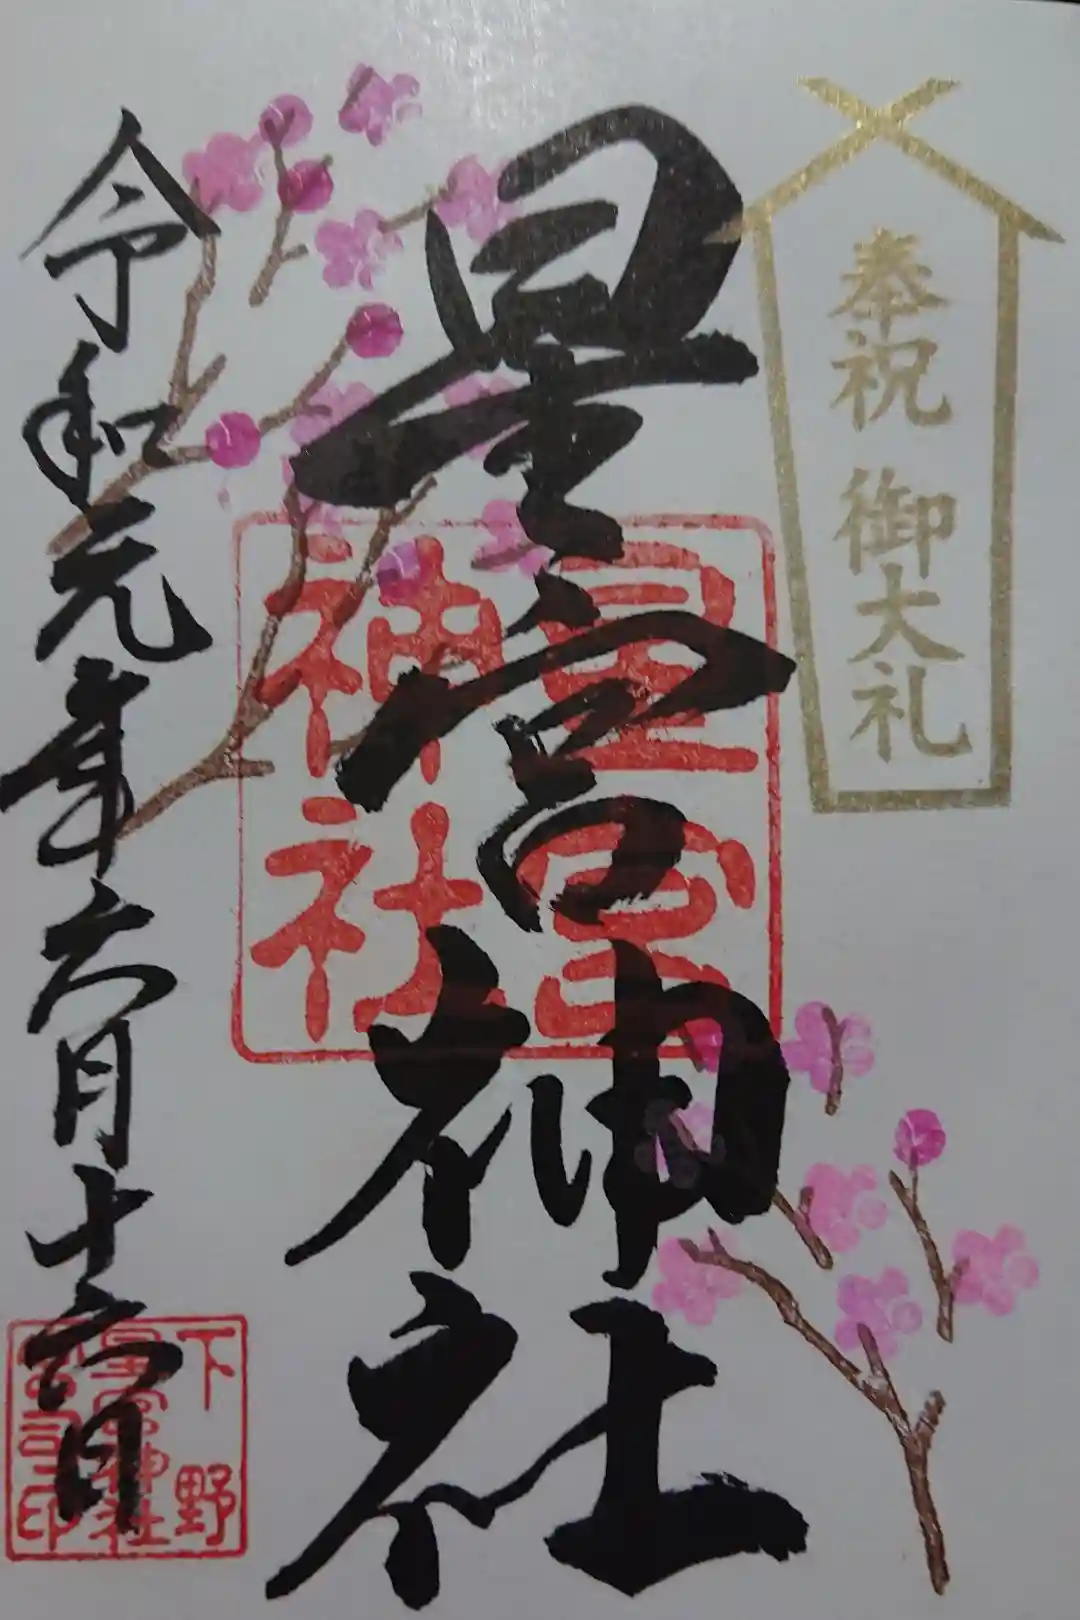 奉祝 御大礼
星宮神社
星宮
神社
令和元年六月十六日
下野
星宮神社
宮司之印